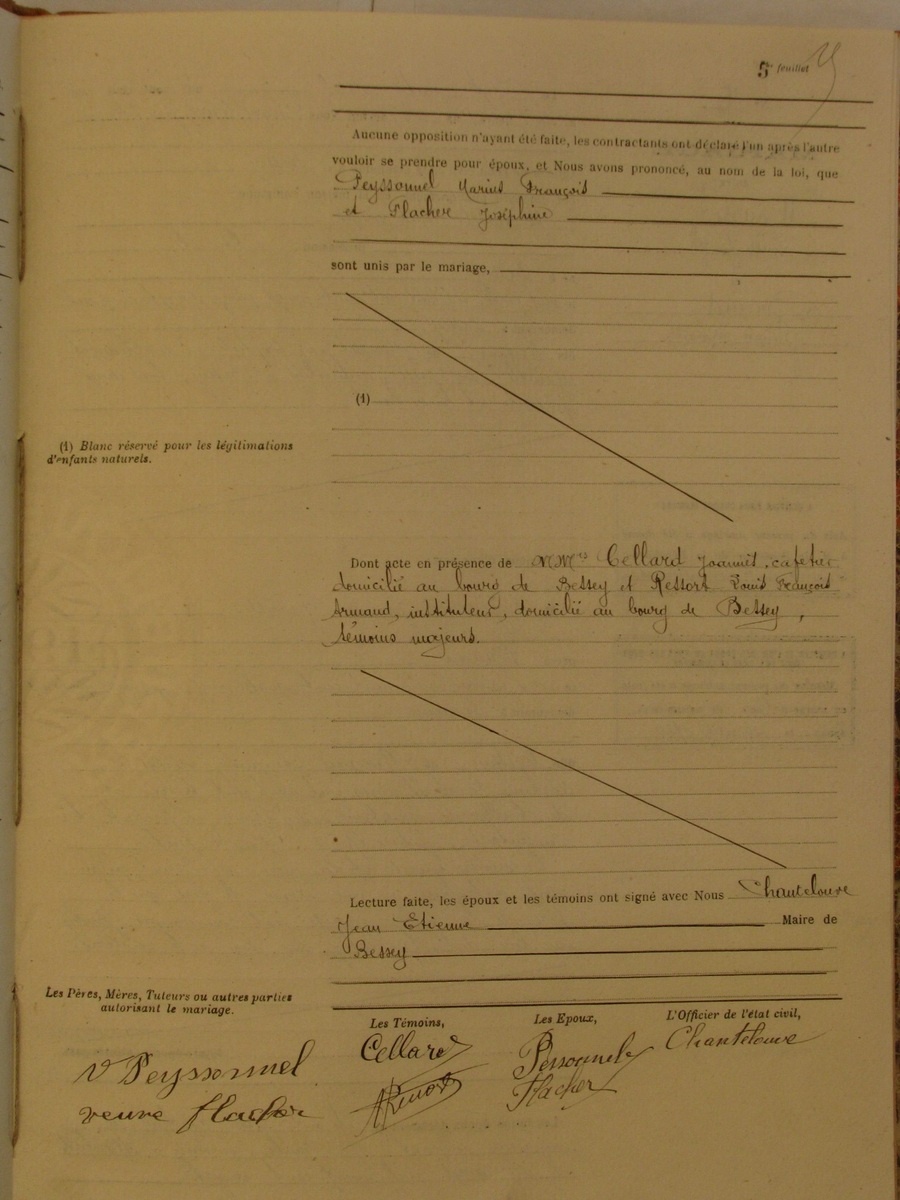 5e feuillet
Aucune opposition n'ayant été faite, les contractants ont déclaré l'un après l'autre
vouloir se prendre pour époux, et Nous avons prononcé, au nom de la loi, que
Peyssonnel Marius François
et Flacher Joséphine
sont unis par le mariage,
(1)
(1) Blanc réservé pour les légitimations
d'enfants naturels.
Dont acte en présence de MMrs Cellard Joannès, cafetier
domicilié au bourg de Bessey et Ressort Louis François
Armand, instituteur, domicilié au bourg de Bessey,
témoins majeurs.
Lecture faite, les époux et les témoins ont signé avec Nous Chantelouve
Jean Etienne Maire de
Bessey
Les Pères, Mères, Tuteurs ou autres parties
autorisant le mariage.
Les Témoins,
Les Epoux,
L'Officier de l'état civil,
V Peyssonnel
veuve flacher
Cellard
Peyssonnel
Flacher
Chantelouve